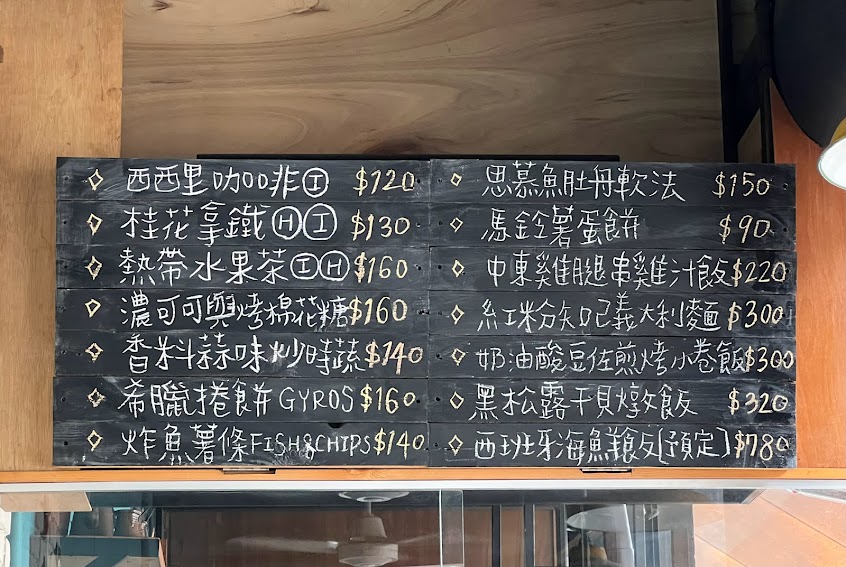 西西里咖啡Ⓘ $120
桂花拿鐵ⒽⒾ $130
熱帶水果茶ⒾⒽ $160
濃可可與烤棉花糖 $160
香料蒜味炒時蔬 $140
希臘捲餅 GYROS $160
炸魚薯條 FISH&CHIPS $140
思慕魚肚丹軟法 $150
馬鈴薯蛋餅 $90
中東雞腿串雞汁飯 $220
紅粉知己義大利麵 $300
奶油酸豆佐煎烤小卷飯 $300
黑松露干貝燉飯 $320
西班牙海鮮飯[預定] $780